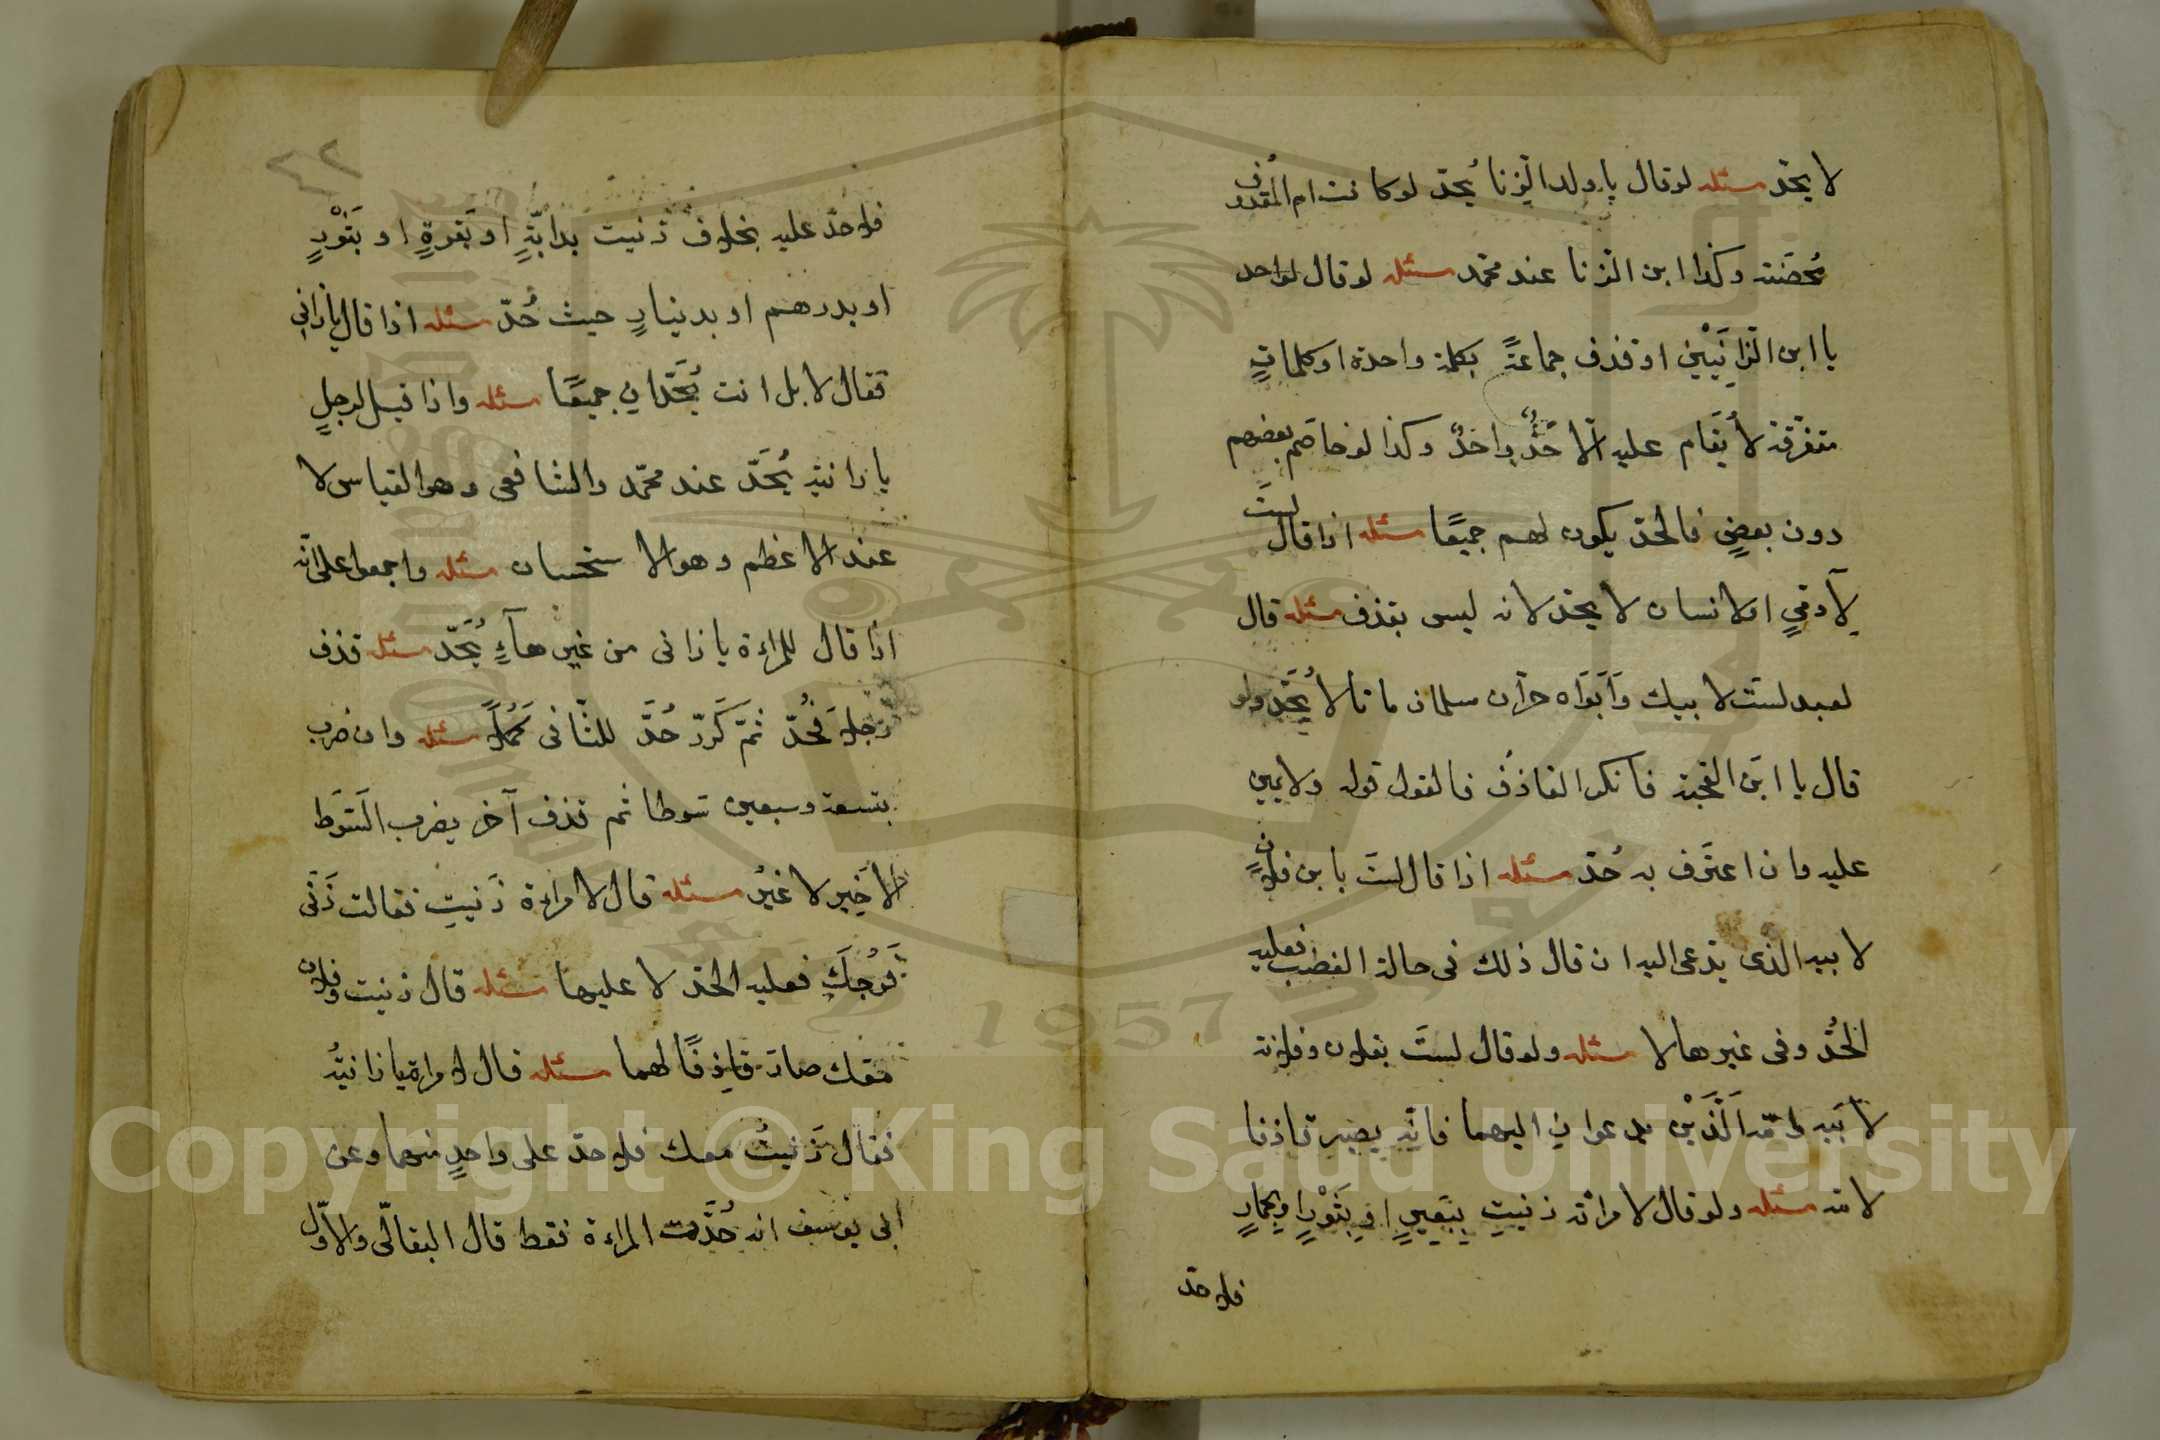 لا يحدّ مسئله لو قال يا ولد الزنا يُحدّ لو كانت ام المقذوف
مُحصَنة وكذا ابن الزنا عند محمّد مسئله لو قال لواحد
يا ابن الزانيَيْنِ او قذف جماعةً بكلمة واحدة او كلماتٍ
متفرّقة لا يُقام عليه الّا حَدٌّ واحدٌ وكذا لو خاصم بعضهم
دون بعضٍ فالحدّ يكون لهم جميعًا مسئله اذا قال لستَ
لِآدمىٍ او لانسان لا يحدّ لانه ليس بقذف مسئله قال
لعبد لستَ لابيك وَاَبَوَاه حرّان مسلمان ماتا لا يُحَدّ ولو
قال يا ابن القحبة فانكر القاذف فالقول قوله ولا يمين
عليه وان اعترف به حُدّ مسئله اذا قال لستَ بابن فلانٍ
لابيه الذى يدّعى اليه ان قال ذلك فى حالة الغضب فعليه
الحُدّ وفى غيرها لا مسئله ولو قال لستَ بفلان وفلانة
لاَبيه وامّه الَّذَيْنِ يدعوان اليهما فانّه يصير قاذفا
لامّه مسئله ولو قال لامرأته زنيتِ ببَعيرٍ او بثَوْرٍ او بحمارٍ
فلا حدّ
٤٢
فلا حدّ عليه بخلاف زنيت بدابّةٍ او بَقرةٍ او بثَوْبٍ
او بدرهم او بدينارٍ حيث حُدّ مسئله اذا قال يا زانى
فقال لا بل انت يُحَدّان جميعًا مسئله واذا قيل لرجلٍ
يا زانية يُحَدّ عند محمّد والشافعى وهو القياس لا
عند الاعظم وهو الاستحسان مسئله واجمعوا على انّه
اذا قال للمراءة يا زانى من غير هآءٍ يُحَدّ مسئله قذف
رّجلا فحُدّ ثمّ كَرّر حُدَّ للثّانى كَمُلاً مسئله وان ضرب
بتسعة وسبعين سوطا ثم قذف آخر يضرب السّوَط
الاخير لا غيرُ مسئله قال لامراءة زَنيتِ فقالت زَنٰى
زَوْجُكَ فعليه الحدّ لا عليها مسئله قال زنيت وفلان
معَك صار قاذفًا لهما مسئله قال لامراة يا زانيةُ
فقال زَنيتُ معك فلا حدّ على واحدٍ منهما وعن
ابى يوسف انه حُدَّت المراءة فقط قال البقالّى والاوّل